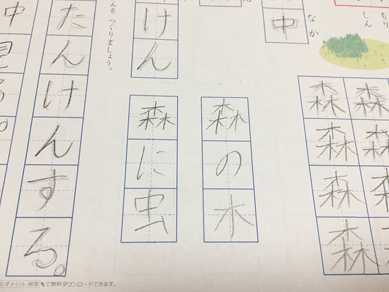 ちり
しん
なか
中
森森
森森
森森
森森
森の木
森に虫
けん
んを つくりましょう。
たんけんする。
中
見
る。
ちびむすドリル 検索 で無料ダウンロードできます。